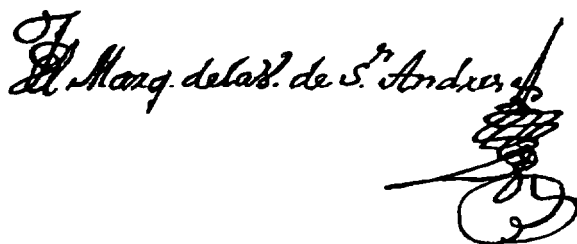 El Marq. dela V. de S.n Andres